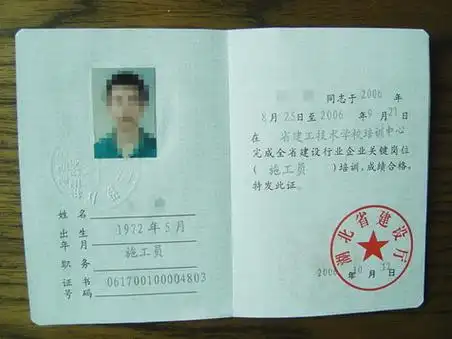 姓名
出生年月 1972年5月
职务 施工员
证书号码 061700100004803
同志于2006年
8月25日至2006年9月27日
在 省建工技术学校培训中心
完成全省建设行业企业关键岗位
( 施工员 )培训,成绩合格,
特发此证。
湖北省建设厅
2006年10月12日